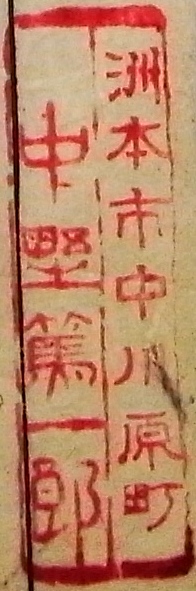 洲本市中川原町
中野篤一郎